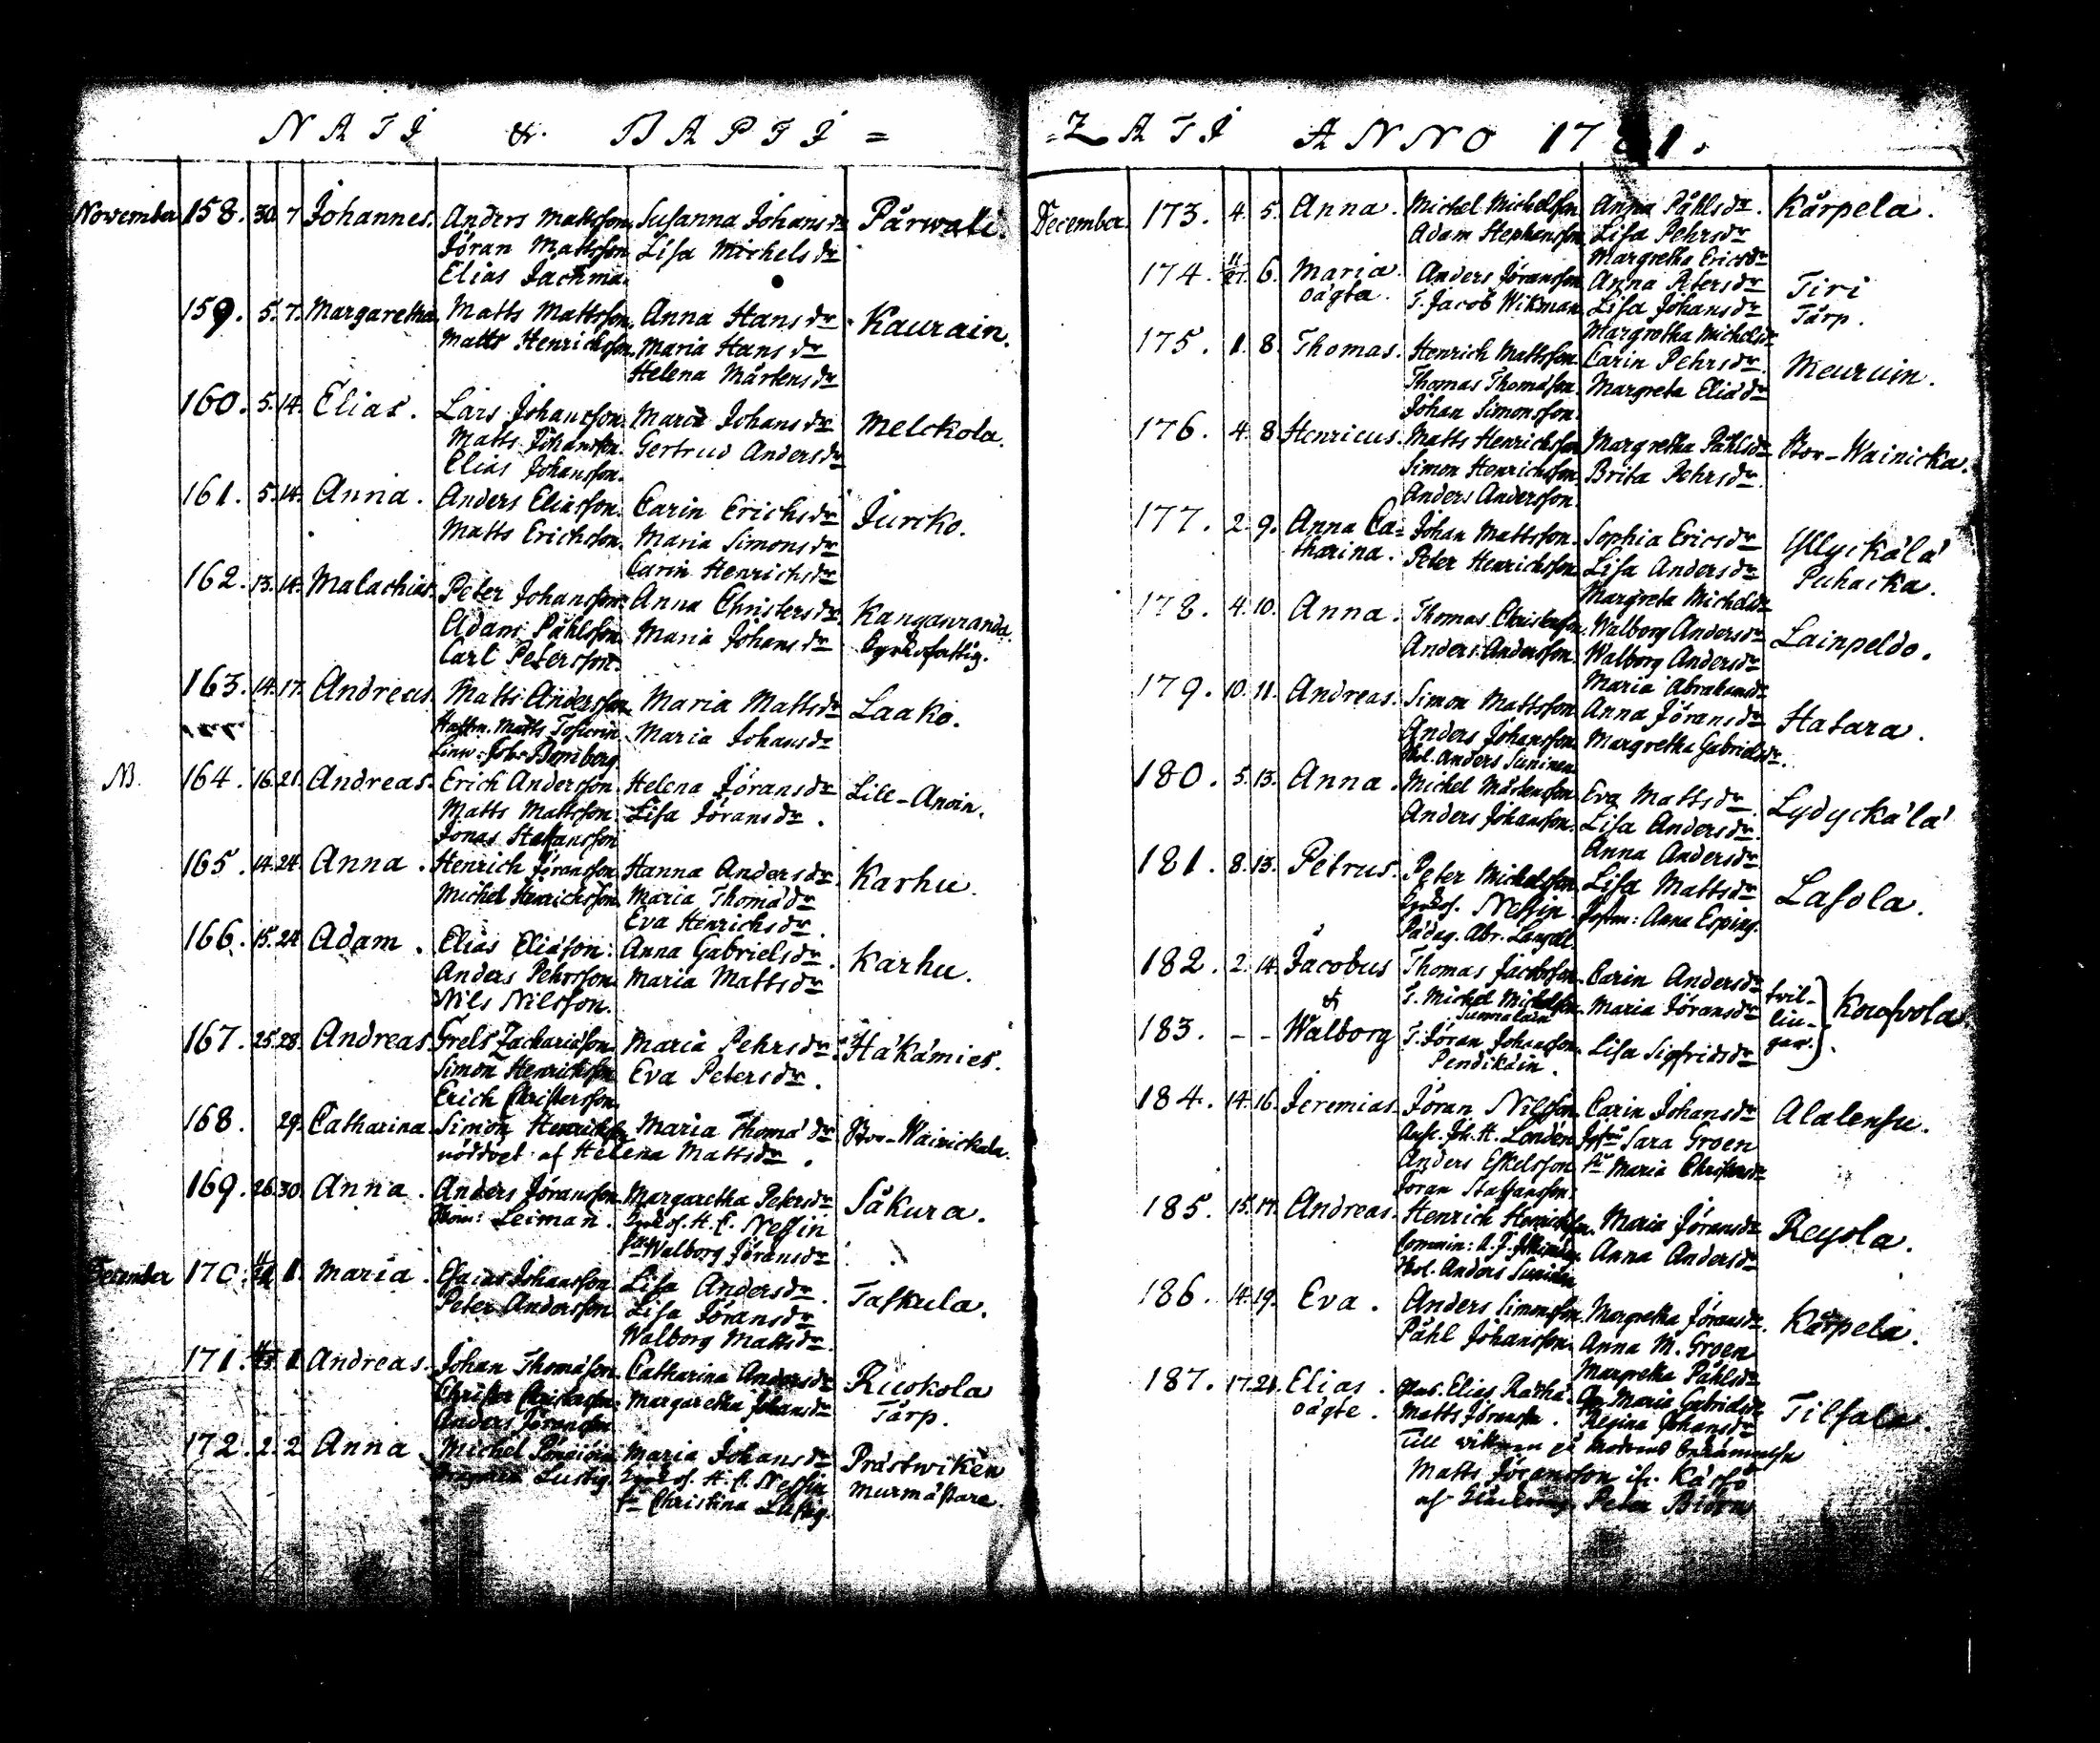 NATI & BAPTI =
November 158. 30. 7 Johannes. Anders Mattsson. Susanna Johansdr Pärwali.
Jöran Mattsson. Lisa Michelsdr
Elias Jachma.
159. 5. 7. Margaretha. Matts Mattsson. Anna Hansdr Kaurain.
Matts Henrichsson. Maria Hansdr
Helena Mårtensdr
160. 5. 14. Elias. Lars Johansson. Maria Johansdr Melckola.
Matts Johansson. Gertrud Andersdr
Elias Johansson.
161. 5. 14. Anna. Anders Eliasson. Carin Erichsdr Jurcko.
Matts Erichsson. Maria Simonsdr
Carin Henrichsdr
162. 13. 14. Malachias. Peter Johansson. Anna Christersdr Kanganranda.
Adam Påhlsson. Maria Johansdr Kyrkofattig.
Carl Petersson.
163. 14. 17. Andreas. Matts Andersson. Maria Mattsdr Laako.
Matts Maria Johansdr
Bomberg
NB. 164. 16. 21. Andreas. Erich Andersson. Helena Jöransdr Lill-Anoin.
Matts Mattsson. Lisa Jöransdr.
Jonas Staffansson
165. 14. 24. Anna. Henrich Jöransson. Hanna Andersdr. Karhu.
Michel Henrichsson. Maria Thomædr
Eva Henrichsdr.
166. 15. 24. Adam. Elias Eliæson. Anna Gabrielsdr. Karhu.
Anders Pehrsson. Maria Mattsdr
Nils Nilsson.
167. 25. 28. Andreas. Grels Zachariæson. Maria Pehrsdr. Häkämies.
Simon Henrichsson. Eva Petersdr.
Erich Christersson
168. 29. Catharina. Simon Henrichsson. Maria Thomædr Stor-Wainickala.
nöddöpt af Helena Mattsdr.
169. 26. 30. Anna. Anders Jöransson. Margaretha Petersdr Säkura.
Leiman. H. C. Nessin
Walborg Jöransdr
December 170. 1. Maria. Esaias Johansson Lisa Andersdr. Taskula.
Peter Andersson Lisa Jöransdr
Walborg Mattsdr.
171. 1. Andreas. Johan Thomæson. Catharina Andersdr Ruokola
Christer Christersson. Margaretha Johansdr Tårp.
Anders Jöransson
172. 2. 2. Anna. Michel Maria Johansdr Prästwiken
Lustig. H. C. Nessin murmästare.
Christina Lustig.
=ZATI ANNO 1781.
December. 173. 4. 5. Anna. Michel Michelsson Anna Påhlsdr. Kårpela.
Adam Stephansson Lisa Pehrsdr
Margretha Ericsdr
174. 11/27. 6. Maria. Anders Jöransson Anna Petersdr Tiri
oägta. S. Jacob Wikman Lisa Johansdr Tårp.
Margretha Michelsdr
175. 1. 8. Thomas. Henrich Mattsson. Carin Pehrsdr. Meuruin.
Thomas Thomæson. Margreta Eliædr
Johan Simonsson.
176. 4. 8. Henricus. Matts Henrichsson Margretha Påhlsdr Stor-Wainicka.
Simon Henrichsson. Brita Pehrsdr.
Anders Andersson.
177. 2. 9. Anna Ca= Johan Mattsson. Sophia Ericsdr Yllyckälä
tharina. Peter Henrichsson. Lisa Andersdr Puhacka.
Margreta Michelsdr
178. 4. 10. Anna. Thomas Christersson. Walborg Andersdr Lainpeldo.
Anders Andersson. Walborg Andersdr
Maria Abrahamsdr
179. 10. 11. Andreas. Simon Mattsson Anna Jöransdr Hatara.
Anders Johansson. Margretha Gabrielsdr.
Anders Suninen
180. 5. 13. Anna. Michel Mårtensson Eva Mattsdr. Lydyckälä
Anders Johansson. Lisa Andersdr
Anna Andersdr
181. 8. 13. Petrus. Peter Michelsson. Lisa Mattsdr Lasola.
Nessin Anna Esping.
Pädag. Abr. Langell
182. 2. 14. Jacobus Thomas Jacobsson. Carin Andersdr tvil-
& S. Michel Michelsson. Maria Jöransdr lin- Kousvola
183. - - Walborg S. Jöran Johansson. Lisa Sigfridsdr gar.
Pendikäin.
184. 14. 16. Jeremias. Jöran Nilsson. Carin Johansdr Alalensu.
Joh. H. Londén Sara Groen
Anders Eskelsson Maria Christersdr
Jöran Staffansson.
185. 15. 17. Andreas. Henrich Henrichsson. Maria Jöransdr Reyola.
Anna Andersdr
Anders Suninen
186. 14. 19. Eva. Anders Simonsson. Margretha Jöransdr. Kårpela.
Påhl Johansson. Anna M. Groen
Margretha Påhlsdr
187. 17. 21. Elias. Elias Maria Gabrielsdr Tilsala.
oägte. Matts Jöransson. Regina Johansdr
Till
Matts Jöransson
af Peter Björn